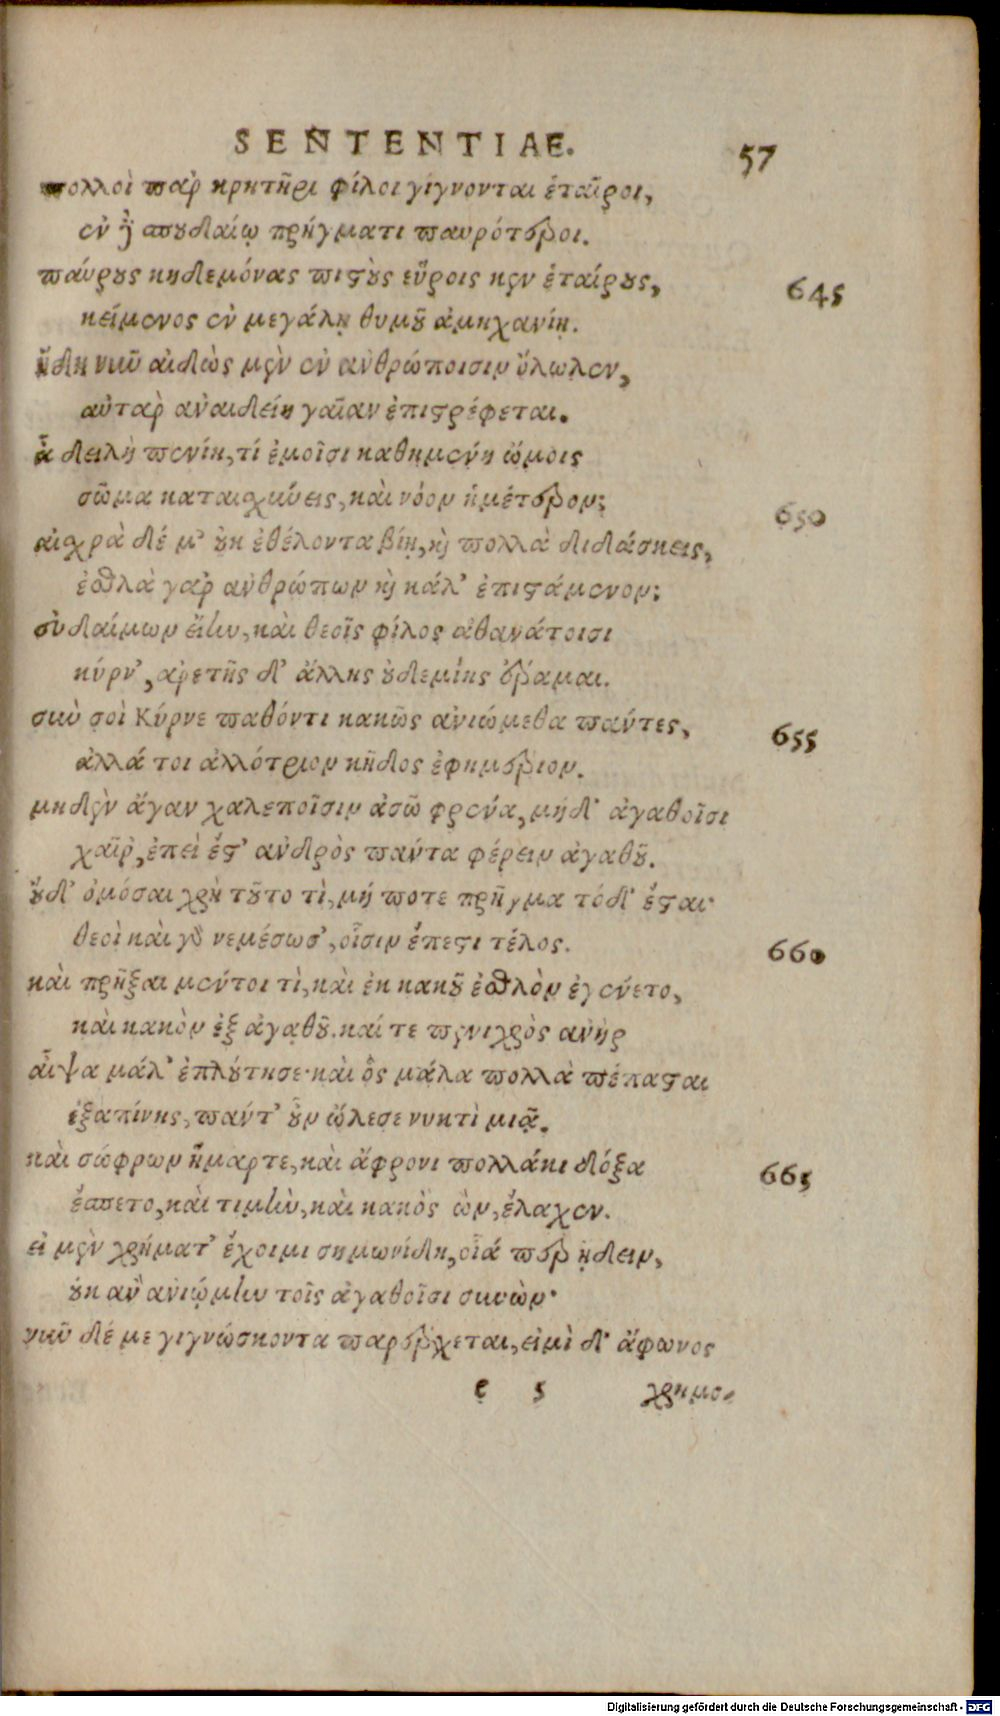 SENTENTIAE. 57
πολλοὶ παρ κρητῆρι φίλοι γίγνονται ἑταῖροι,
ἐν δὲ σπουδαίῳ πρήγματι παυρότεροι.
παύρους κηδεμόνας πιστοὺς εὕροις κεν ἑταίρους, 645
κείμενος ἐν μεγάλῃ θυμοῦ ἀμηχανίῃ.
ἤδη νῦν αἰδὼς μὲν ἐν ἀνθρώποισιν ὄλωλεν,
αὐτὰρ ἀναιδείη γαῖαν ἐπιστρέφεται.
ἆ δειλὴ πενίη, τί ἐμοῖσι καθημένη ὤμοις
σῶμα καταισχύνεις, καὶ νόον ἡμέτερον; 650
αἰσχρὰ δέ μ' οὐκ ἐθέλοντα βίῃ, καὶ πολλὰ διδάσκεις,
ἐσθλὰ γὰρ ἀνθρώπων καὶ κάλ' ἐπιστάμενον;
εὐδαίμων εἴην, καὶ θεοῖς φίλος ἀθανάτοισι
κύρν', ἀρετῆς δ' ἄλλης οὐδεμίης ἔραμαι.
σὺν σοὶ Κύρνε παθόντι κακῶς ἀνιώμεθα πάντες, 655
ἀλλά τοι ἀλλότριον κῆδος ἐφημέριον.
μηδὲν ἄγαν χαλεποῖσιν ἀσῶ φρένα, μήδ' ἀγαθοῖσι
χαῖρ', ἐπεὶ ἔστ' ἀνδρὸς πάντα φέρειν ἀγαθοῦ.
οὔδ' ὀμόσαι χρὴ τοῦτο τὶ, μή ποτε πρῆγμα τόδ' ἔσται·
θεοὶ καὶ γὰρ νεμέσωσ', οἷσιν ἔπεστι τέλος. 660
καὶ πρῆξαι μέντοι τὶ, καὶ ἐκ κακοῦ ἐσθλὸν ἐγένετο,
καὶ κακὸν ἐξ ἀγαθοῦ. καί τε πενιχρὸς ἀνὴρ
αἶψα μάλ' ἐπλούτησε· καὶ ὃς μάλα πολλὰ πέπασται
ἐξαπίνης, πάντ' οὖν ὤλεσε νυκτὶ μιᾷ.
καὶ σώφρων ἥμαρτε, καὶ ἄφρονι πολλάκι δόξα 665
ἕσπετο, καὶ τιμὴν, καὶ κακὸς ὢν, ἔλαχεν.
εἰ μὲν χρήματ' ἔχοιμι σημωνίδη, οἷά περ ᾔδειν,
οὐκ ἂν ἀνιῴμην τοῖς ἀγαθοῖσι συνών·
νῦν δέ με γιγνώσκοντα παρέρχεται, εἰμὶ δ' ἄφωνος
e 5 χρημο-
Digitalisierung gefördert durch die Deutsche Forschungsgemeinschaft - DFG